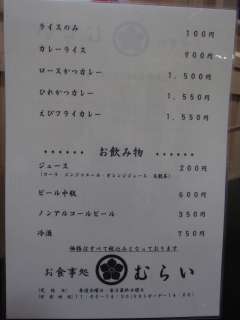 ライスのみ 100円
カレーライス 700円
ロースかつカレー 1,500円
ひれかつカレー 1,550円
えびフライカレー 1,550円
・・・・・・ お飲み物 ・・・・・・
ジュース 200円
(コーラ・ジンジャエール・オレンジジュース・烏龍茶)
ビール中瓶 600円
ノンアルコールビール 350円
冷酒 750円
価格はすべて税込みとなっております
お食事処 むらい